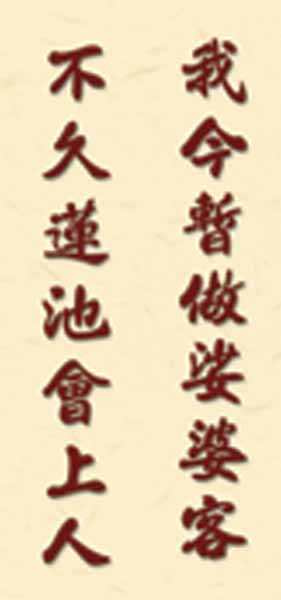 我今暫做娑婆客
不久蓮池會上人